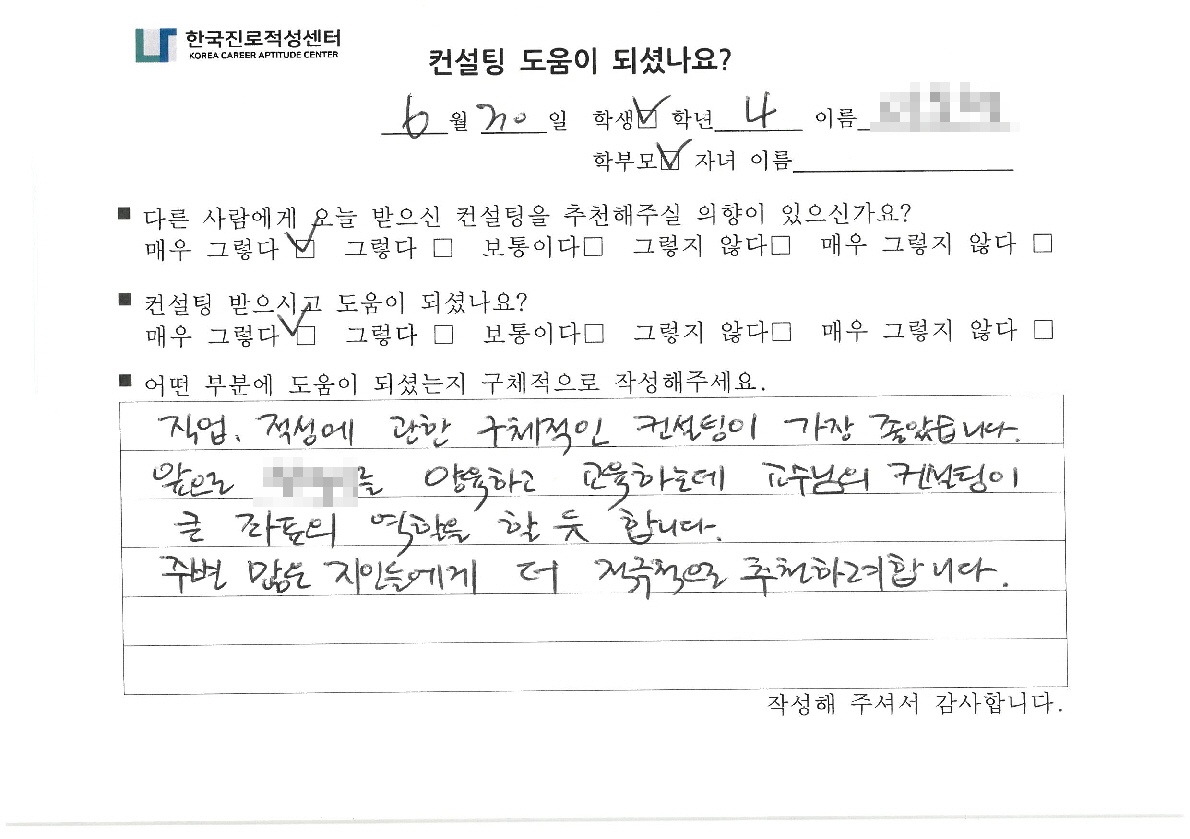 한국진로적성센터
KOREA CAREER APTITUDE CENTER
컨설팅 도움이 되셨나요?
6월 20일 학생☑ 학년 4 이름
학부모☑ 자녀 이름
■ 다른 사람에게 오늘 받으신 컨설팅을 추천해주실 의향이 있으신가요?
매우 그렇다 ☑ 그렇다 □ 보통이다□ 그렇지 않다□ 매우 그렇지 않다 □
■ 컨설팅 받으시고 도움이 되셨나요?
매우 그렇다 ☑ 그렇다 □ 보통이다□ 그렇지 않다□ 매우 그렇지 않다 □
■ 어떤 부분에 도움이 되셨는지 구체적으로 작성해주세요.
직업, 적성에 관한 구체적인 컨설팅이 가장 좋았습니다.
앞으로 를 양육하고 교육하는데 교수님의 컨설팅이
큰 좌표의 역할을 할 듯 합니다.
주변 많은 지인들에게 더 적극적으로 추천하려합니다.
작성해 주셔서 감사합니다.